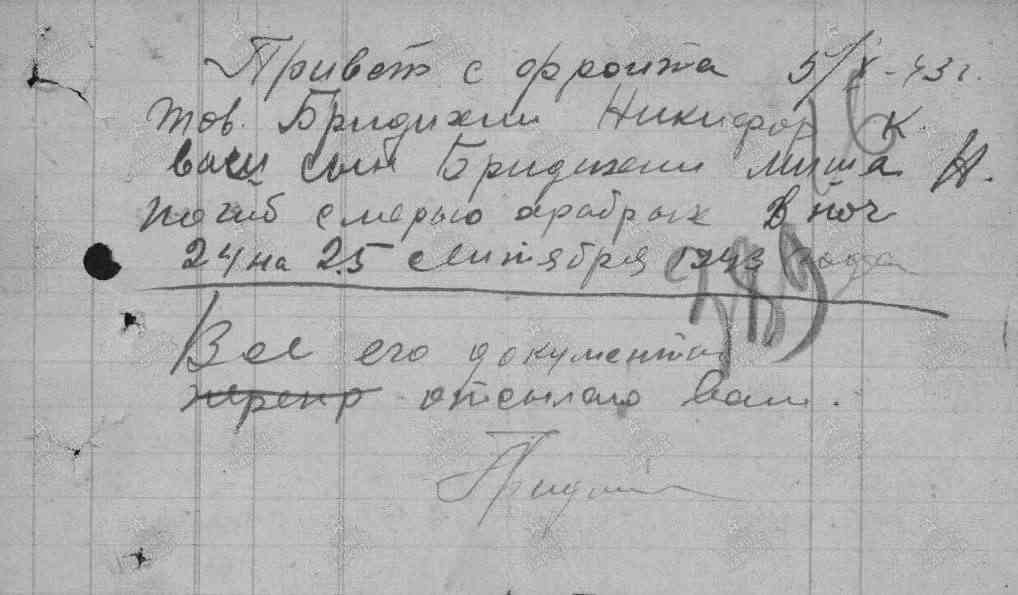 Привет с фронта 5/X-43 г.
тов. Бридихин Никифор К
ваш сын Бридихин миша Н.
погиб смерью храбрых в ноч
24 на 25 сентября 1943 года
389
Все его документы
перепр отсылаю вам.